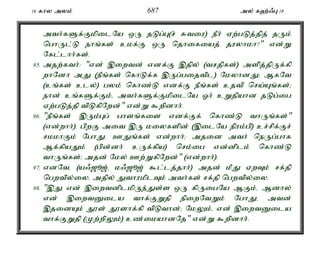 16 கால அலம் 687 அல் கஹ்ஃபு 18
அவர்களுக்குமிடையே ஒரு தடுப்பு(ச் சுவரை) நீர் ஏற்படுத்தித் தரும்
பொருட்டு நாங்கள் உமக்கு ஒரு தொகையைத் தரலாமா?" என்று
கேட்டார்கள்.
95. அதற்கவர்: "என் இறைவன் எனக்கு இதில் (வசதிகள்) அளித்திருக்கி
றானோ அது (நீங்கள் கொடுக்க இருப்பதைவிட) மேலானது; ஆகவே
(உங்கள் உடல்) பலம் கொண்டு எனக்கு நீங்கள் உதவி செய்யுங்கள்;
நான் உங்களுக்கும், அவர்களுக்குமிடையே ஓர் உறுதியான தடுப்பை
ஏற்படுத்தி விடுகிறேன்" என்று கூறினார்.
96. "நீங்கள் இரும்புப் பாளங்களை எனக்குக் கொண்டு வாருங்கள்"
(என்றார்). பிறகு அவை இரு மலைகளின் (இடையே நிரம்பி) உச்சிக்குச்
சமமாகும் போது, ஊதுங்கள் என்றார்; அதனை அவர் நெருப்பாக
ஆக்கியதும் (பின்னர் உருக்கிய) செம்பை என்னிடம் கொண்டு
வாருங்கள்; அதன் மேல் ஊற்றுகிறேன்" (என்றார்).
97. எனவே, (யஃஜூஜ், மஃஜூஜ் கூட்டத்தார்) அதன் மீது ஏறவும் சக்தி
பெறவில்லை. அதில் துவாரமிடவும் அவர்கள் சக்தி பெறவில்லை.
98. "இது என் இறைவனிடமிருந்துள்ள ஒரு கிருபையே ஆகும், ஆனால்
என் இறைவனுடைய வாக்குறுதி நிறைவேறும் போது, அவன்
இதனையும் தூள் தூளாக்கி விடுவான்; மேலும், என் இறைவனுடைய
வாக்குறுதி (முற்றிலும்) உண்மையானதே" என்று கூறினார்.